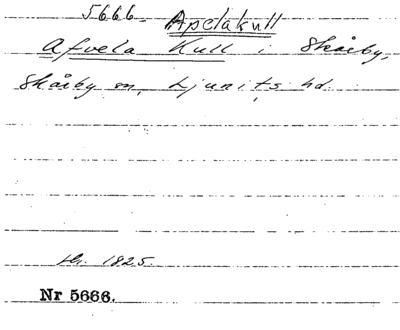 5666. Apelakull
Afvela Kull i Skårby,
Skårby sn, Ljunits hd.
1825.
Nr 5666.